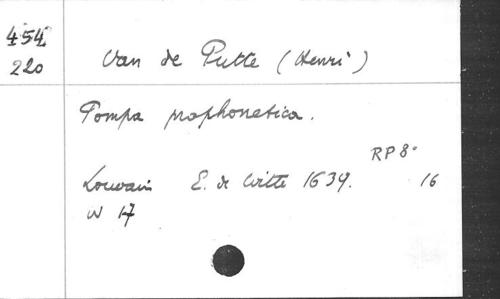 454
220
Van de Putte (Henri)
Pompa prophonetica.
RP 8°
Louvain E. de Witte 1639. 16
W 17